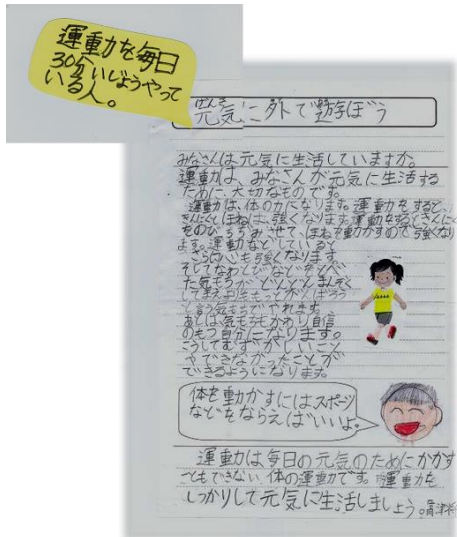 運動を毎日
30分いじょうやって
いる人。
げんき
元気に外で遊ぼう
みなさんは元気に生活していますか。
運動は、みなさんが元気に生活する
ために大切なものです。
運動は、体の力になります。運動をすると、
きんにくとほねは、強くなります。運動をするときんにく
をのびちぢみさせて、ほねを動かすので強くなり
ます。運動などしていると
さらに心も強くなります。
そしてなわとびなどをとべ
た気もちが、どんどん
気もちがやれます。
気もちもかわり自信
のもう自分になります。
こうしてむずかしいこと
やできなかったことが
できるようになります。
体を動かすにはスポーツ
などをならえばいいよ。
運動は毎日の元気のためにかかす
こともできない体の運動です。運動を
しっかりして元気に生活しましょう。